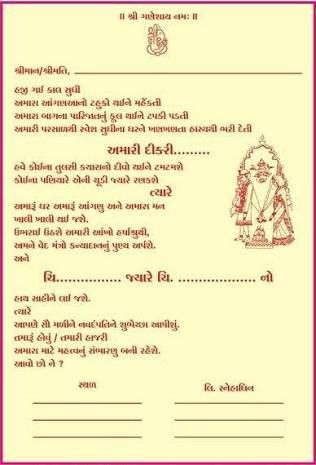 ॥ શ્રી ગણેશાય નમઃ ॥
શ્રીમાન/શ્રીમતિ,
હજી ગઈ કાલ સુધી
અમારા આંગણઆનો ટહુકો થઈને મહેંકતી
અમારા બાગના પારિજાતનું ફુલ થઈને ટપકી પડતી
અમારી પરસાળથી રવેશ સુધીના ઘરને ખણખણતા હાસ્યથી ભરી દેતી
અમારી દીકરી.........
હવે કોઈના તુલસી ક્યારાનો દીવો થઈને ટમટમશે
કોઈના પણિયારે એની ચૂડી જ્યારે રણકશે
ત્યારે
અમારૂં ઘર અમારૂં આંગણુ અને અમારા મન
ખાલી ખાલી થઈ જશે.
ઉભરાઈ ઉઠશે અમારી આંખો હર્ષાશ્રુથી,
અમને વેદ મંત્રો કન્યાદાનનું પુણ્ય અર્પશે.
અને
ચિ................ જ્યારે ચિ. ................... નો
હાથ સાહીને લઈ જશે.
ત્યારે
આપણે સૌ મળીને નવદંપતિને શુભેચ્છા આપીશું.
તમારૂં હોવું / તમારી હાજરી
અમારા માટે મહત્વનું સંભારણુ બની રહેશે.
આવો છો ને ?
સ્થળ
લિ. સ્નેહાધિન